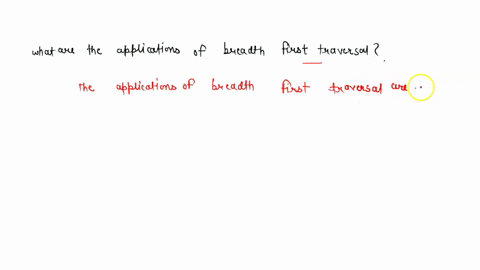 what are the applications of breadth first traversal?
The applications of breadth first traversal are ..